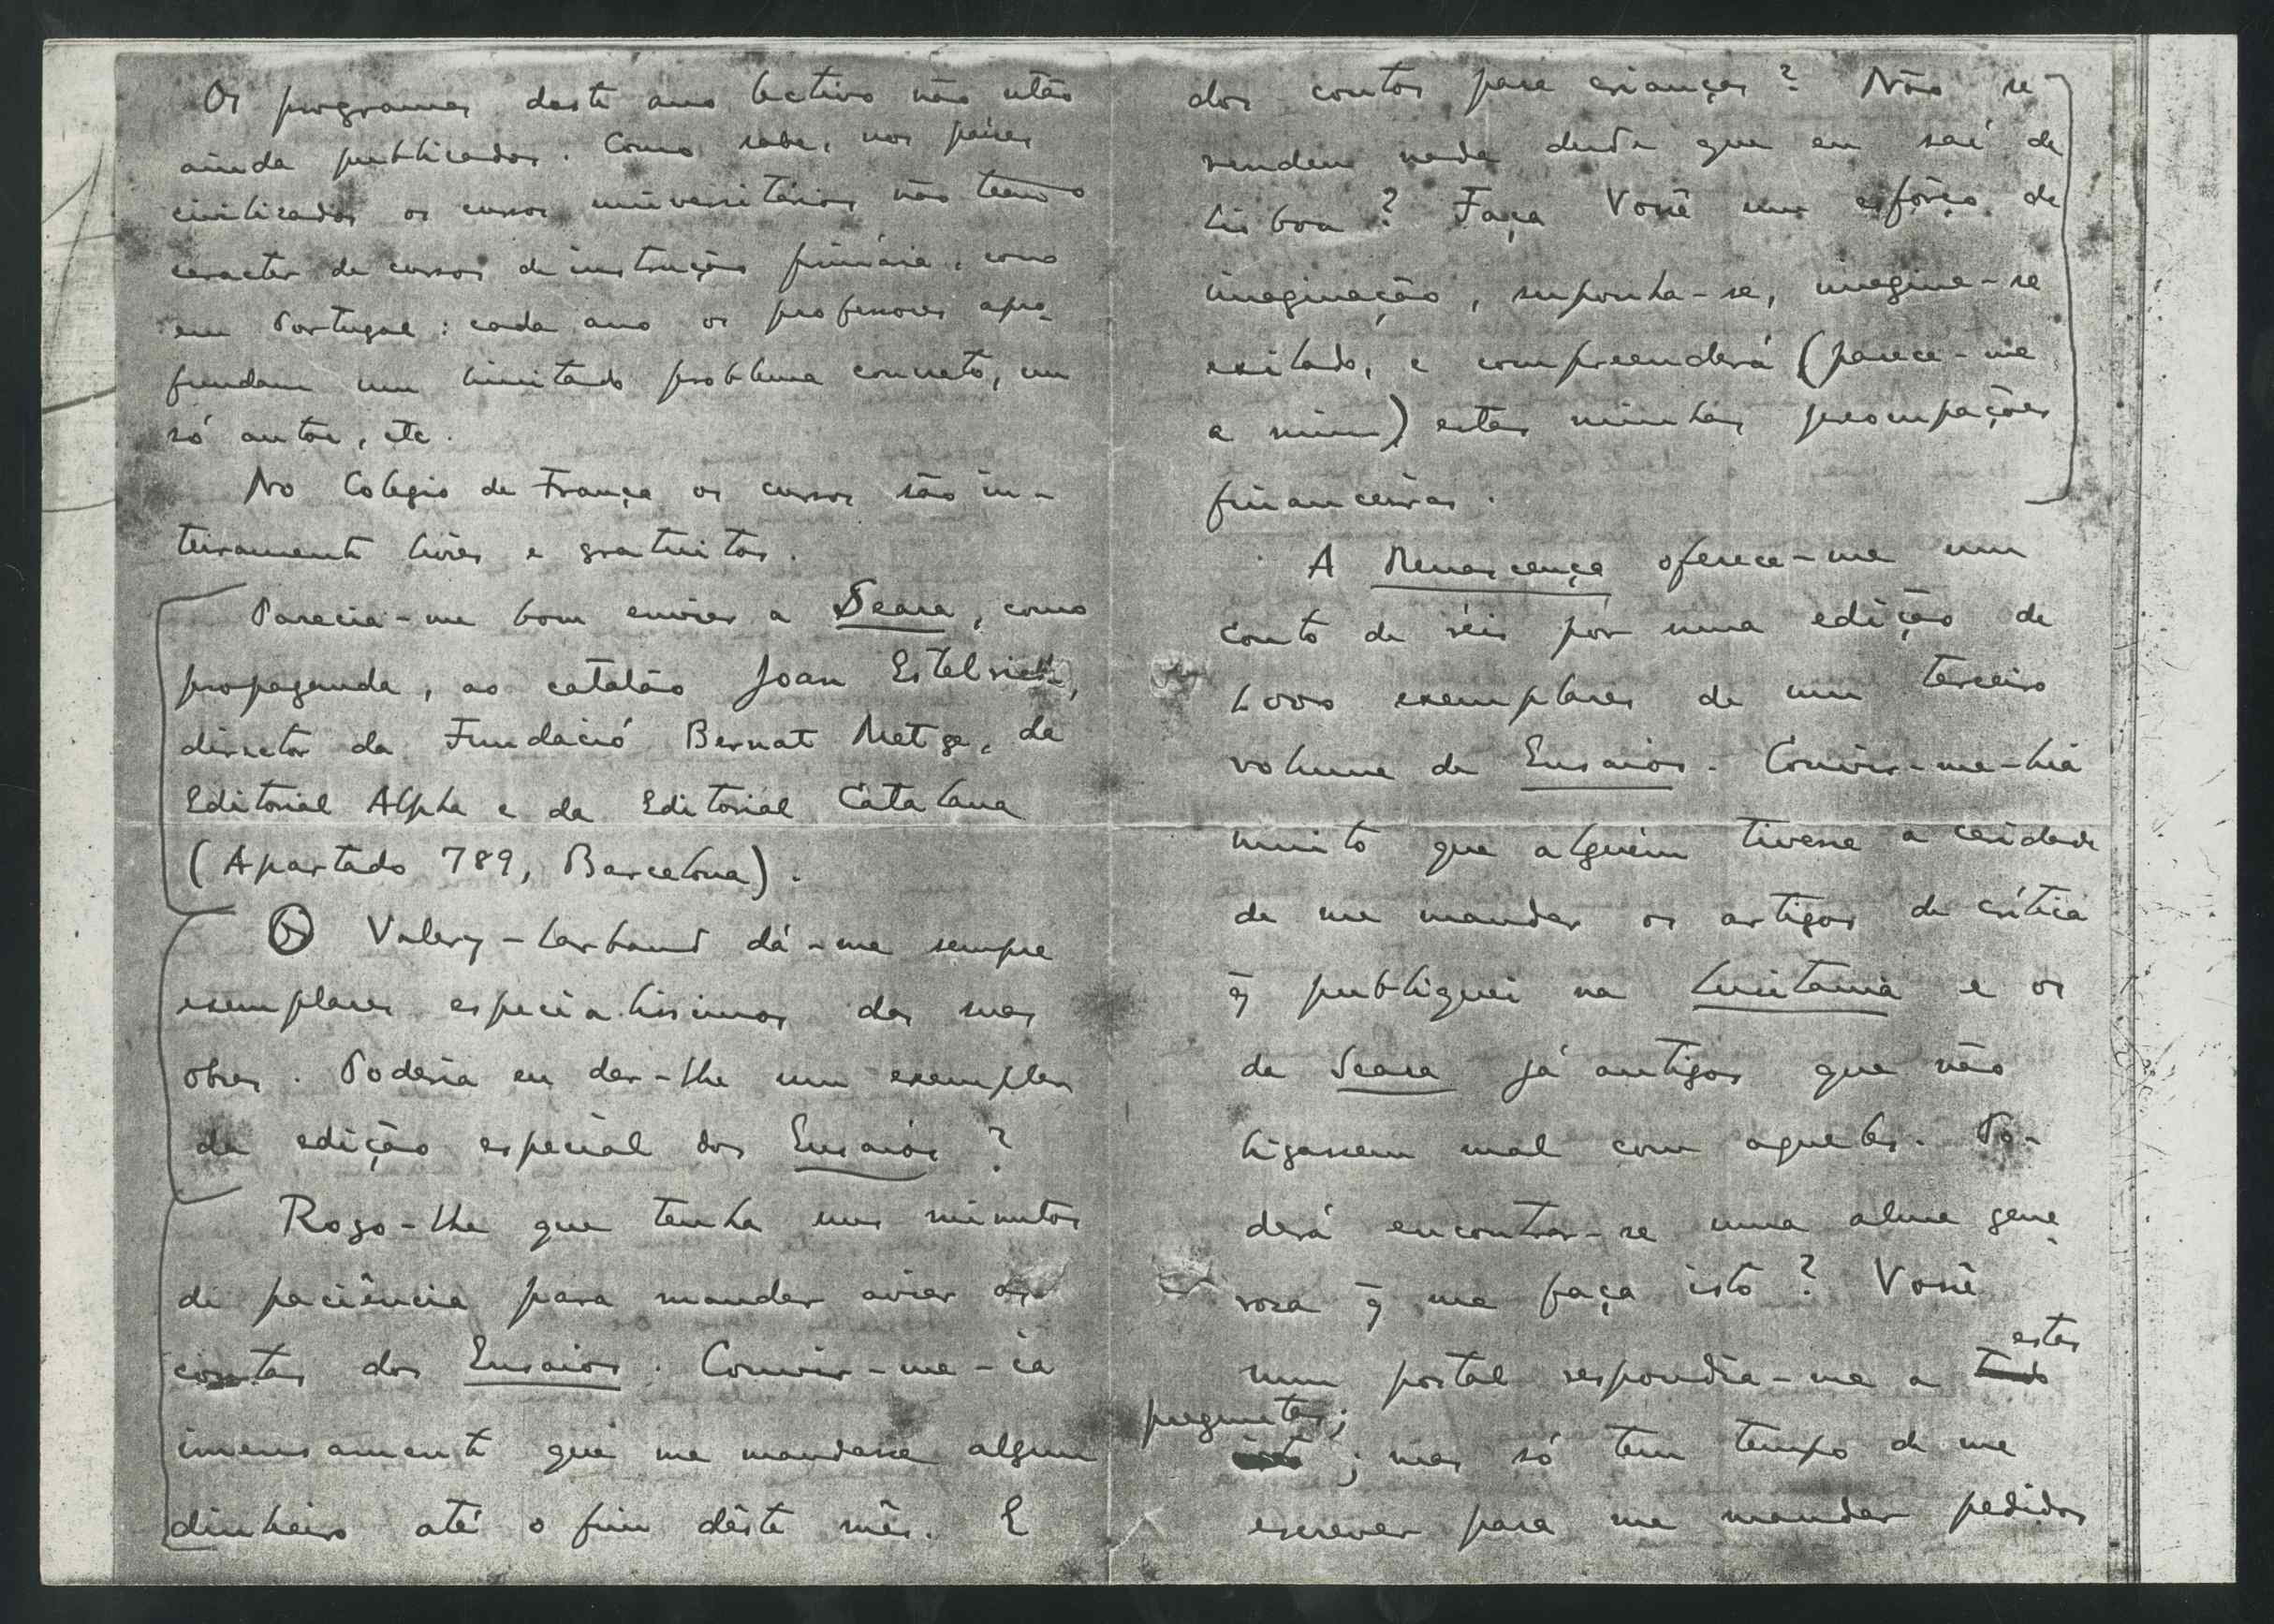 Os programas deste ano lectivo não estão
ainda publicados. Como sabe, nos países
civilizados os cursos universitários não teem o
caracter de cursos de instrução primária, como
em Portugal: cada ano os professores apro-
fundam um limitado problema concreto, um
só autor, etc.
No Colegio de França os cursos são in-
teiramente livres e gratuitos.
Parecia-me bom enviar a Seara, como
propaganda, ao catalão Joan Estelrich,
director da Fundació Bernat Metge, da
Editorial Alpha e da Editorial Catalana
(Apartado 789, Barcelona).
Valery-Larbaud dá-me sempre
exemplares especialissimos das suas
obras. Poderia eu dar-lhe um exemplar
da edição especial dos Ensaios?
Rogo-lhe que tenha uns minutos
de paciência para mandar aviar as
contas dos Ensaios. Convir-me-ia
imensamente que me mandasse algum
dinheiro até o fim dêste mês. E
dos contos para crianças? Não se
vendeu nada desde que eu saí de
Lisboa? Faça Você um esfôrço de
imaginação, suponha-se, imagine-se
exilado, e compreenderá (parece-me
a mim) estas minhas preocupações
financeiras.
A Renascença oferece-me um
conto de réis por uma edição de
2000 exemplares de um terceiro
volume de Ensaios. Convir-me-hia
muito que alguém tivesse a caridade
de me mandar os artigos de crítica
q̃ publiquei na Lusitania e os
da Seara já antigos que não
ligassem mal com aqueles. Po-
derá encontrar-se uma alma gene-
rosa q̃ me faça isto? Você
num postal respondia-me a estas
perguntas;
; mas só tem tempo de me
escrever para me mandar pedidos